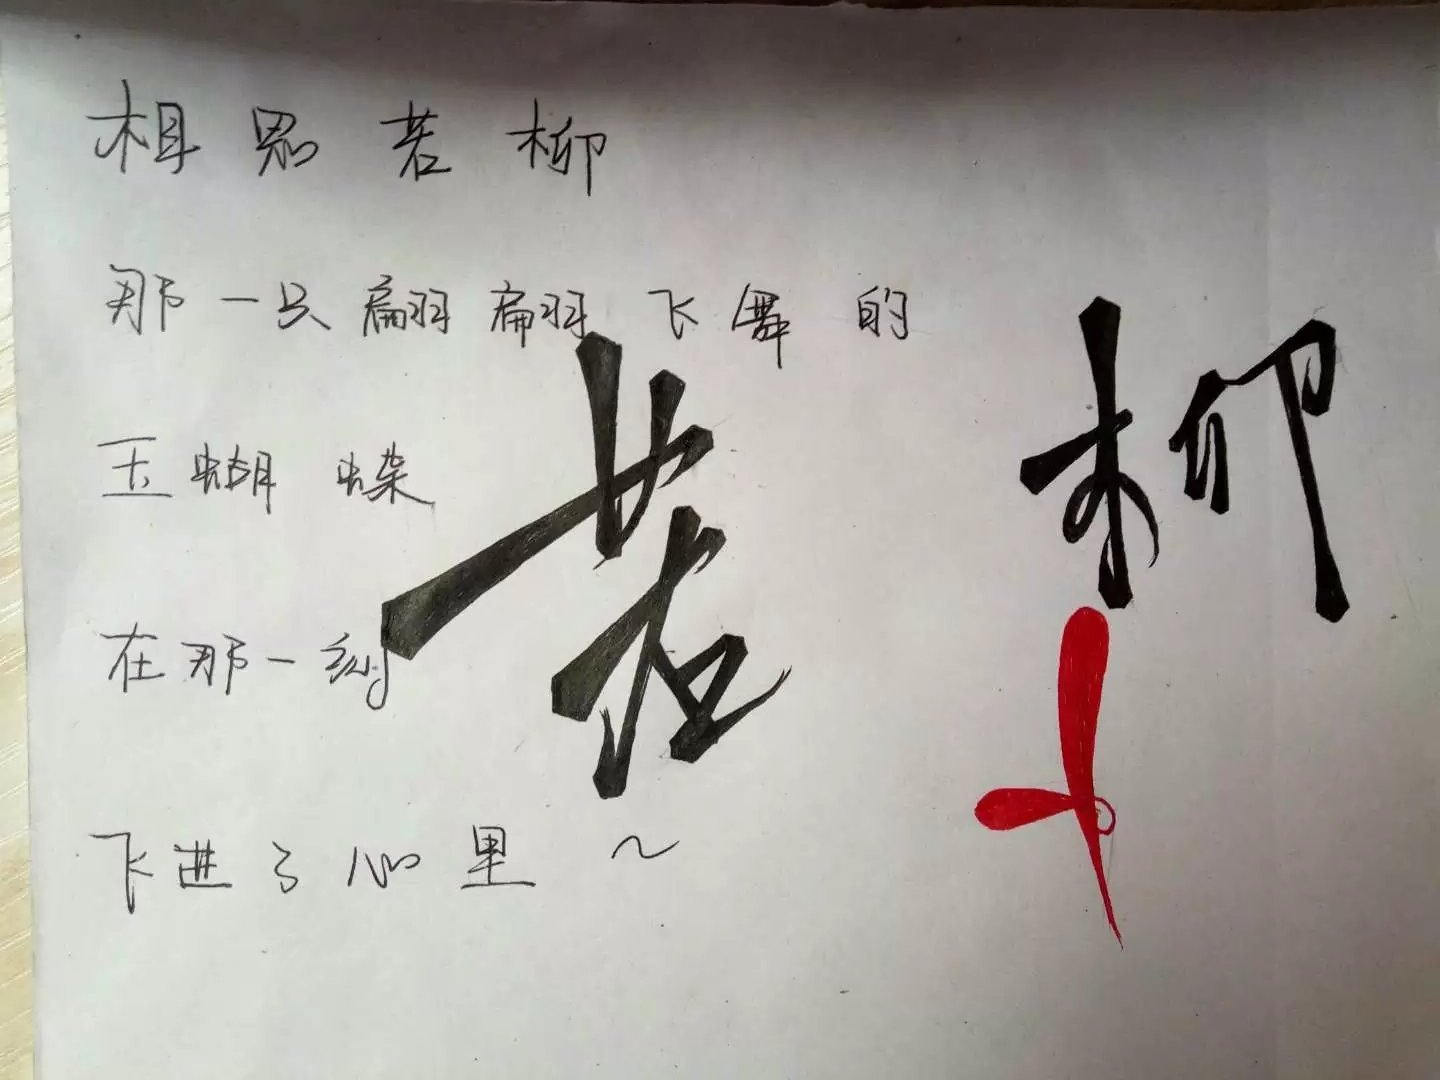 相思若柳
那一只翩翩飞舞的
玉蝴蝶
在那一刻
飞进了心里～
若柳